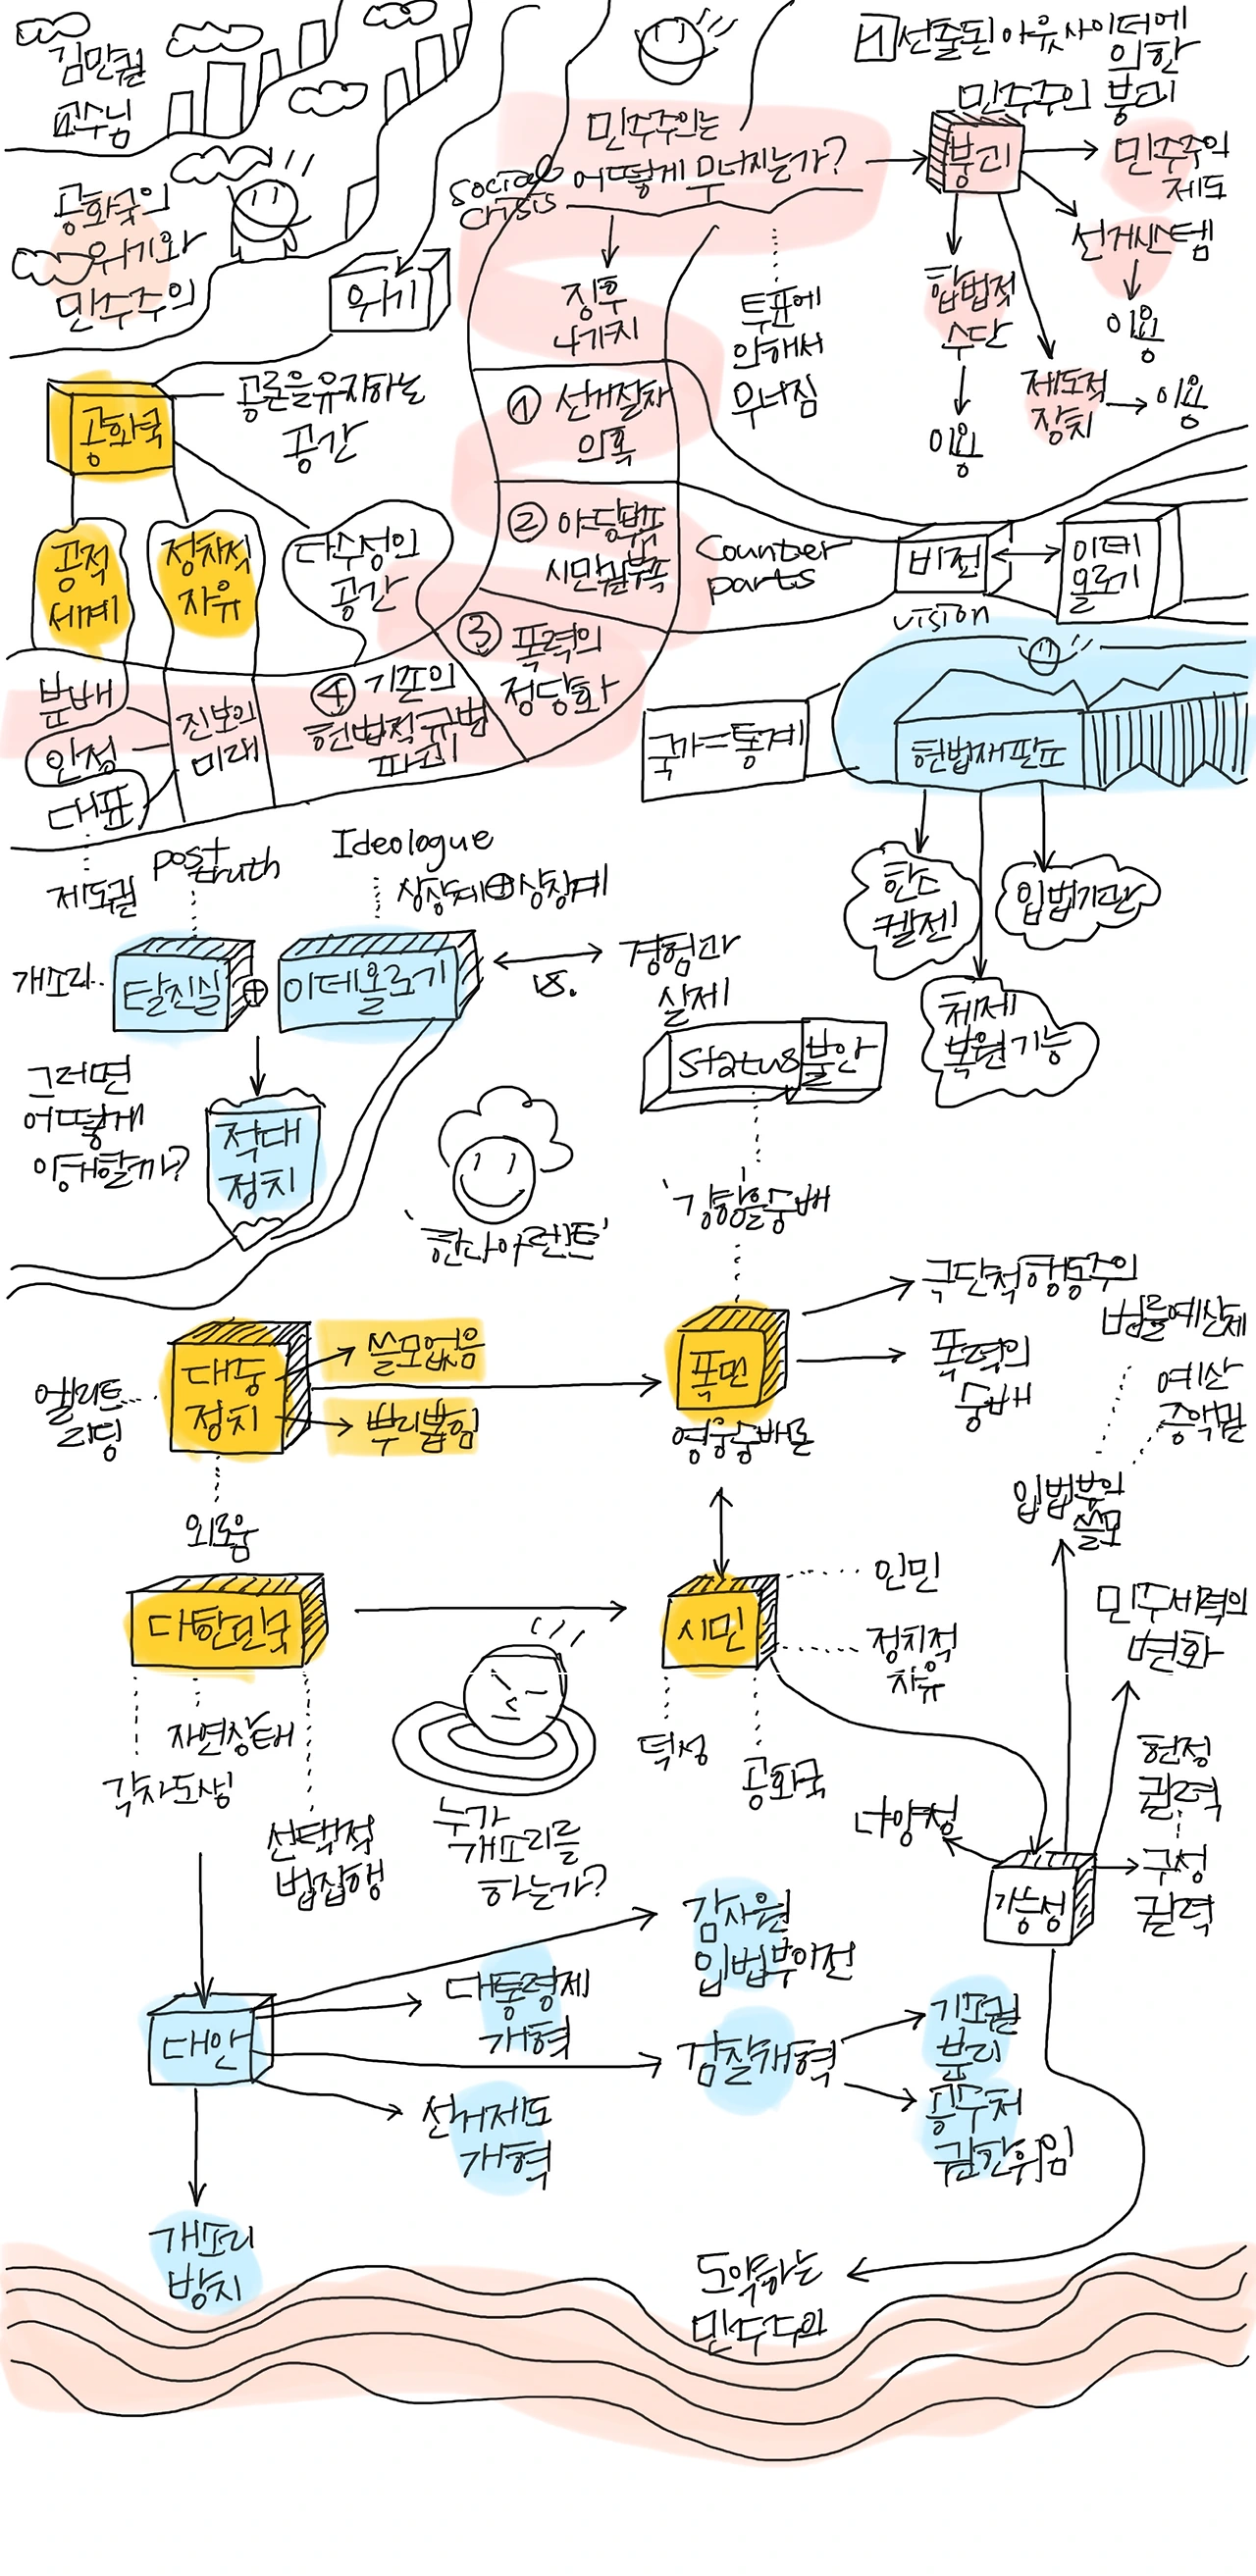 김만권
교수님
공화국의
위기와
민주주의
위기
social
crisis
민주주의는
어떻게 무너지는가?
징후
4가지
투표에
의해서
무너짐
① 선거절차
의혹
② 야당탄압
시민권부족
③ 폭력의
정당화
④ 기존의
헌법적규범
파괴
1 선출된 아웃사이더에
의한
민주주의 붕괴
붕괴
민주주의
제도
선거시스템
이용
합법적
수단
이용
제도적
장치
이용
공화국
공론을유지하는
공간
공적
세계
정치적
자유
다수성의
공간
분배
인정
대표
제도권
진보의
미래
Counter
parts
비전
vision
이데
올로기
국가=통계
헌법재판소
한스
켈젠
입법기관
체제
복원기능
post
truth
Ideologue
상상계⊕상징계
개소리
탈진실
⊕
이데올로기
vs.
경험과
실제
그러면
어떻게
이해할까?
적대
정치
'한나아렌트'
Status불안
'강함을숭배
엘리트
리딩
대중
정치
쓸모없음
뿌리뽑힘
외로움
폭민
영웅숭배론
극단적행동주의
폭력의
숭배
법률예산제
예산
증액권
입법부의
쓸모
대한민국
자연상태
각자도생
선택적
법집행
시민
인민
정치적
자유
덕성
공화국
누가
개소리를
하는가?
민주세력의
변화
헌정
권력
구성
권력
다양성
가능성
대안
감사원
입법부이전
대통령제
개혁
검찰개혁
기소권
분리
공수처
권한위임
선거제도
개혁
개소리
방지
도약하는
민주주의